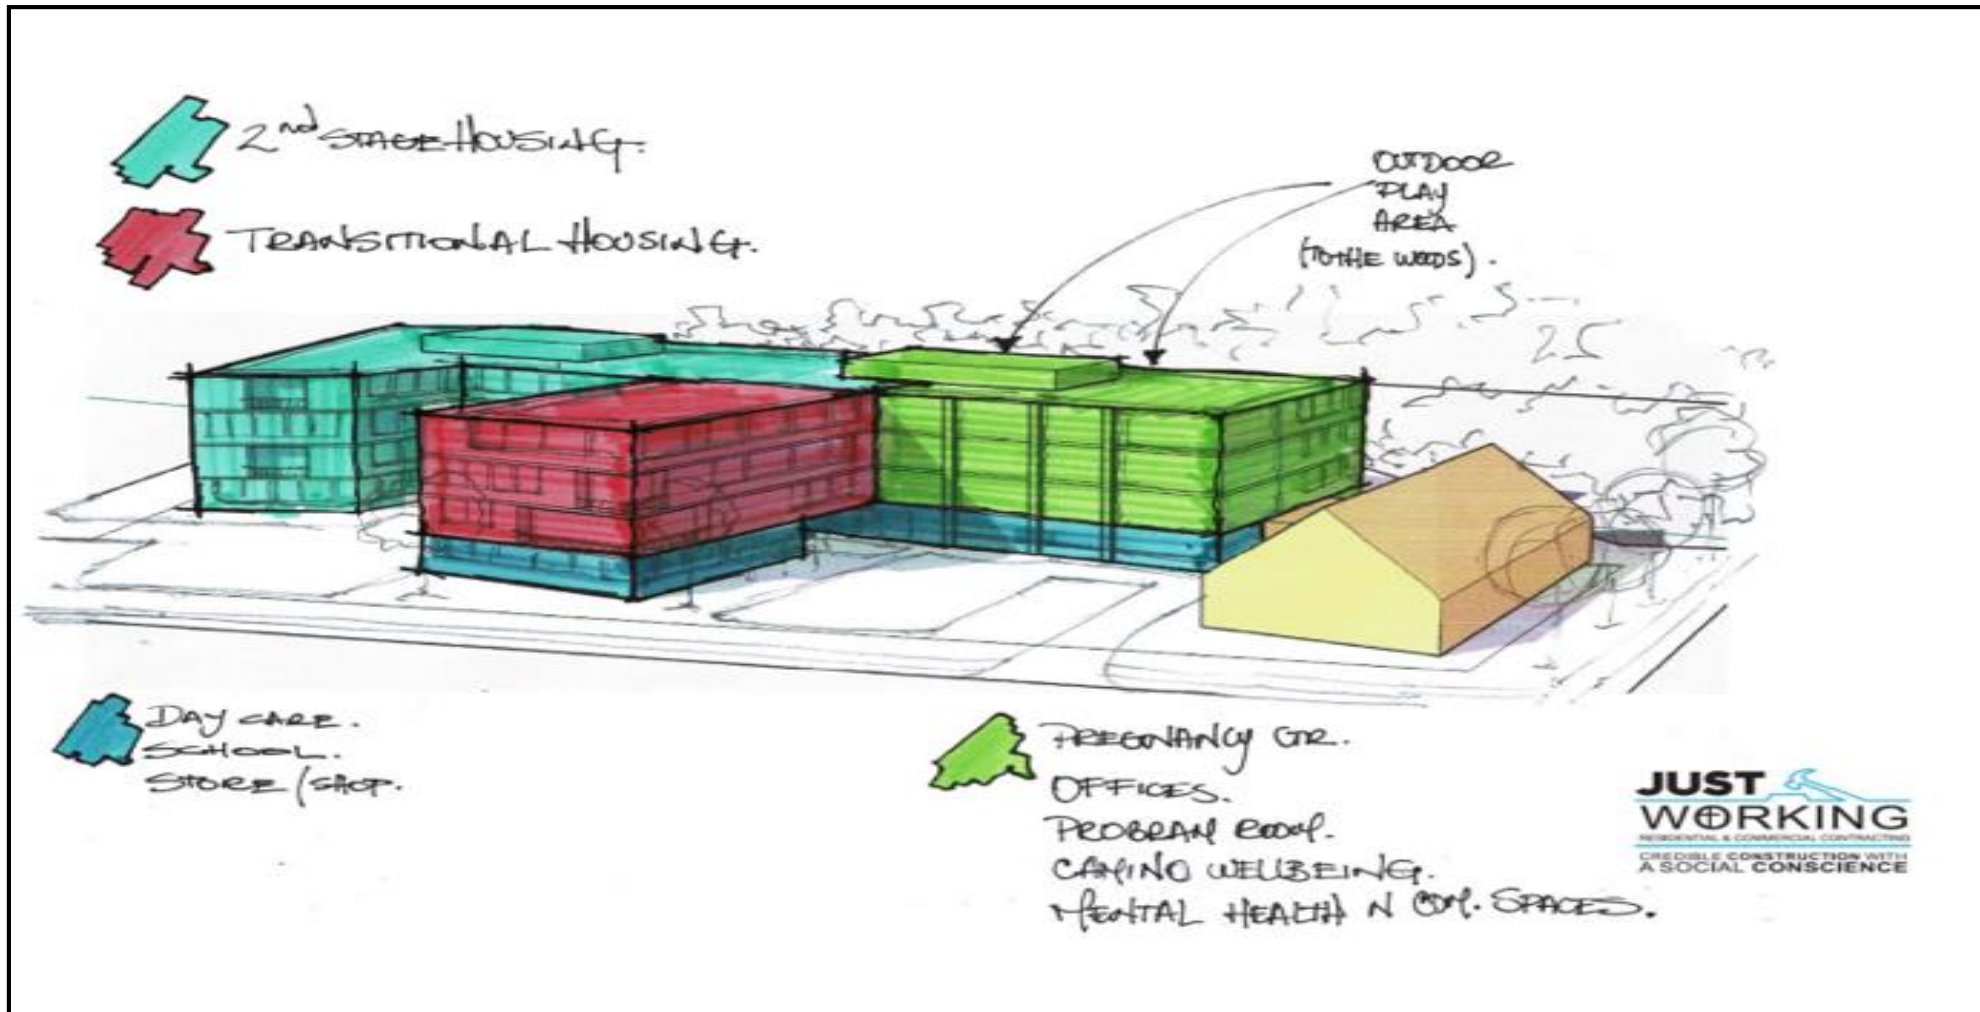 2nd STAGE HOUSING.
TRANSITIONAL HOUSING.
OUTDOOR
PLAY
AREA
(TO THE WOODS).
DAY CARE.
SCHOOL.
STORE/SHOP.
PREGNANCY CTR.
OFFICES.
PROGRAM ROOM.
CAMINO WELLBEING.
MENTAL HEALTH N COM. SPACES.
JUST
WORKING
RESIDENTIAL & COMMERCIAL CONTRACTING
CREDIBLE CONSTRUCTION WITH
A SOCIAL CONSCIENCE